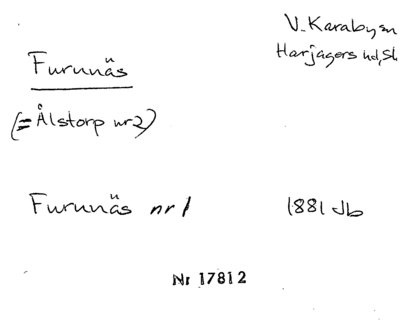 V. Karaby sn
Harjagers hd, Sk
Furunäs
(= Ålstorp nr 2)
Furunäs nr 1 1881 Jb
Nr 17812